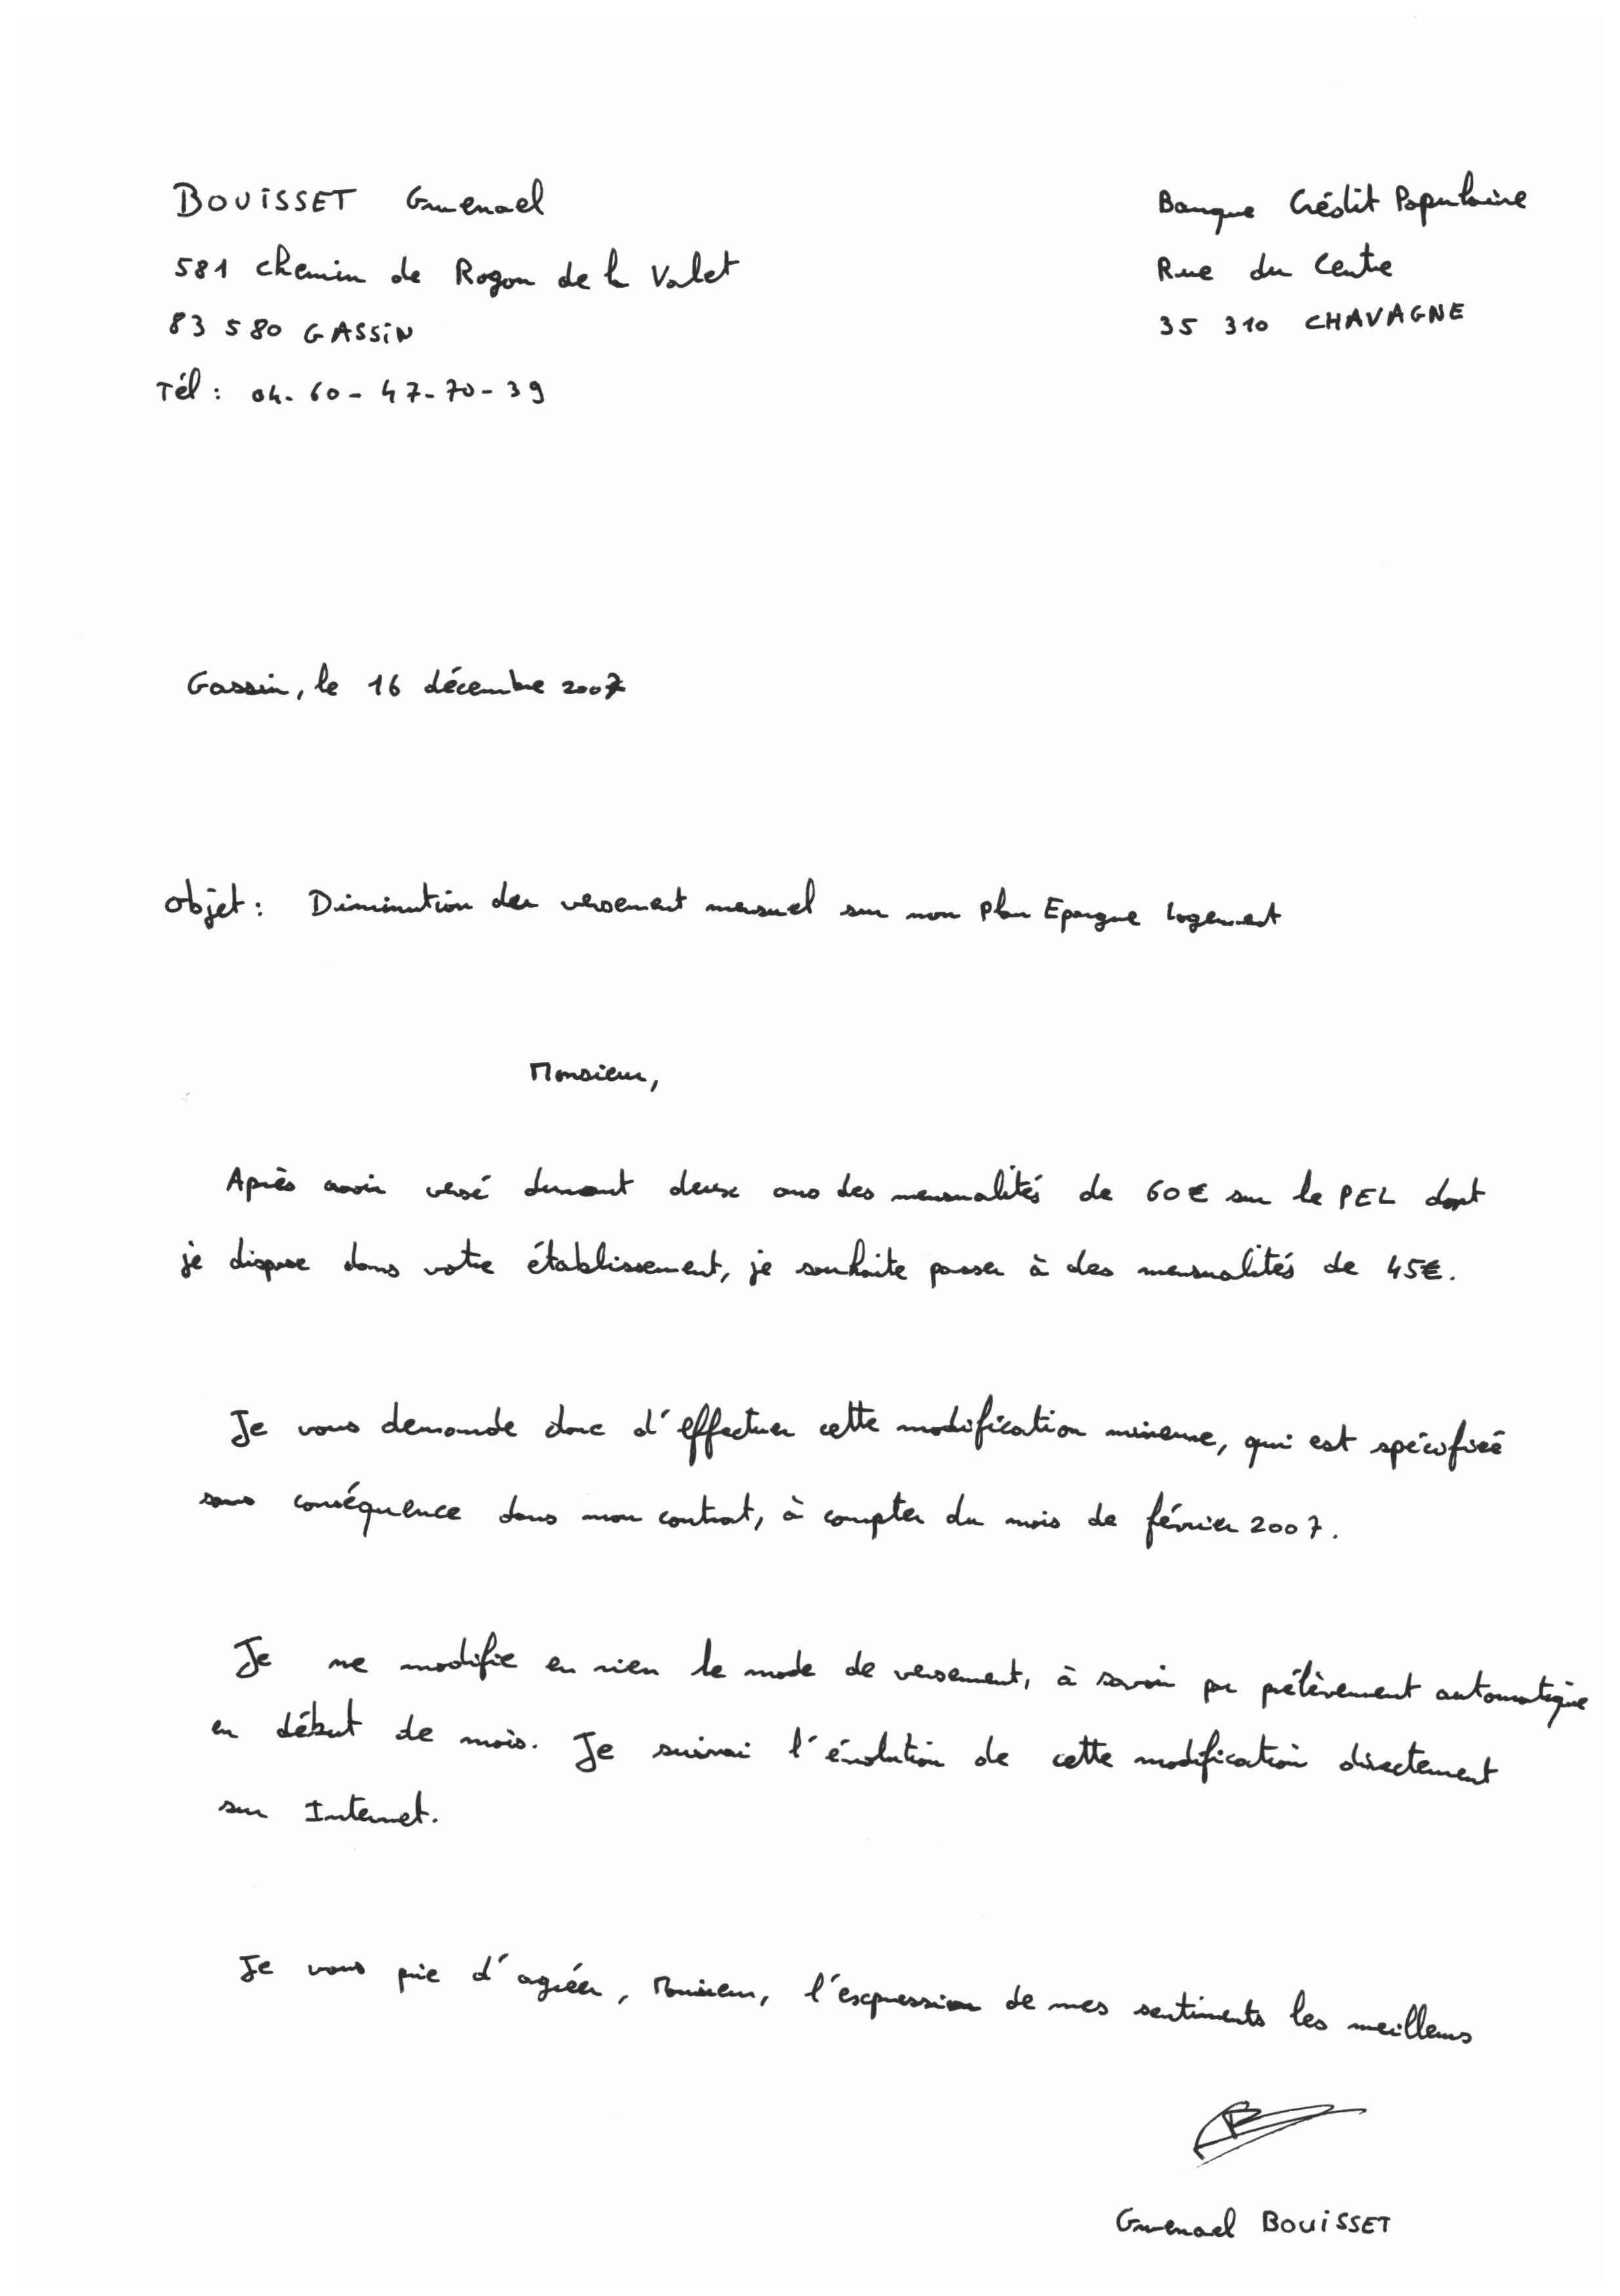 BOUISSET Gwenael
581 chemin de Rogon de la Valet
83 580 GASSIN
Tél : 04-60-47-70-39
Banque Crédit Populaire
Rue du Centre
35 310 CHAVAGNE
Gassin, le 16 décembre 2007
Objet : Diminution der versement mensuel sur mon Plan Epargne Logement
Monsieur,
Après avoir versé durant deux ans des mensualités de 60€ sur le PEL dont
je dispose dans votre établissement, je souhaite passer à des mensualités de 45€.
Je vous demande donc d'effectuer cette modification mineure, qui est spécifiée
sans conséquence dans mon contrat, à compter du mois de février 2007.
Je ne modifie en rien le mode de versement, à savoir par prélèvement automatique
en début de mois. Je suivrai l'évolution de cette modification directement
sur Internet.
Je vous prie d'agréer, Monsieur, l'expression de mes sentiments les meilleurs
Gwenael BOUISSET